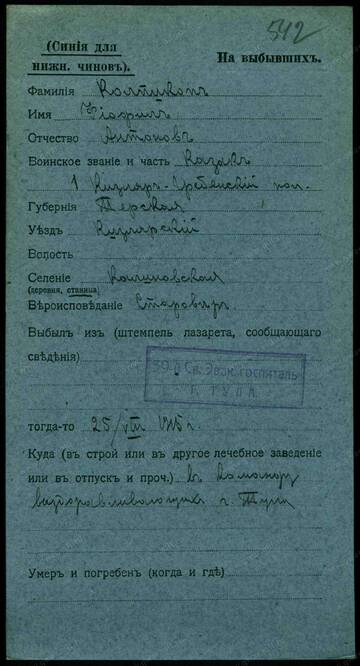 542
(Синія для
нижн. чиновъ).
На выбывшихъ.
Фамилія
Имя
Отчество Антоновъ
Воинское званіе и часть казакъ
1 Кизляр-Гребенскій пол.
Губернія Терская
Уѣздъ Кизлярскій
Волость
Селеніе Калиновская
(деревня, станица)
Вѣроисповѣданіе Старовѣръ.
Выбылъ изъ (штемпель лазарета, сообщающаго
свѣдѣнія)
39-й Св. Эвак. госпиталь
Г. ТУЛА
тогда-то 25/VIII 1915 г.
Куда (въ строй или въ другое лечебное заведеніе
или въ отпускъ и проч.) въ команду
выздоравливающихъ г. Тула
Умеръ и погребенъ (когда и гдѣ)